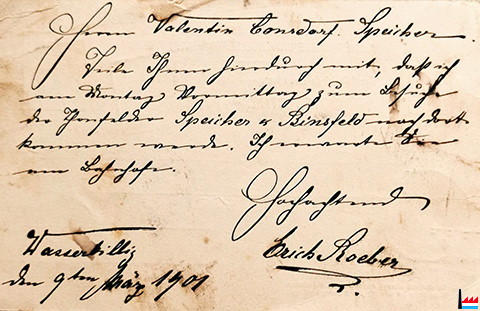 Herrn Valentin Consdorf. Speicher.
Teile Ihnen hierdurch mit, daß ich
am Montag Vormittag zum Besuche
der Thonfelder Speicher & Binsfeld nach dort
kommen werde. Ich erwarte Sie
am Bahnhofe.
Hochachtend
Erich Roeber
Wasserbillig
den 9ten März 1901